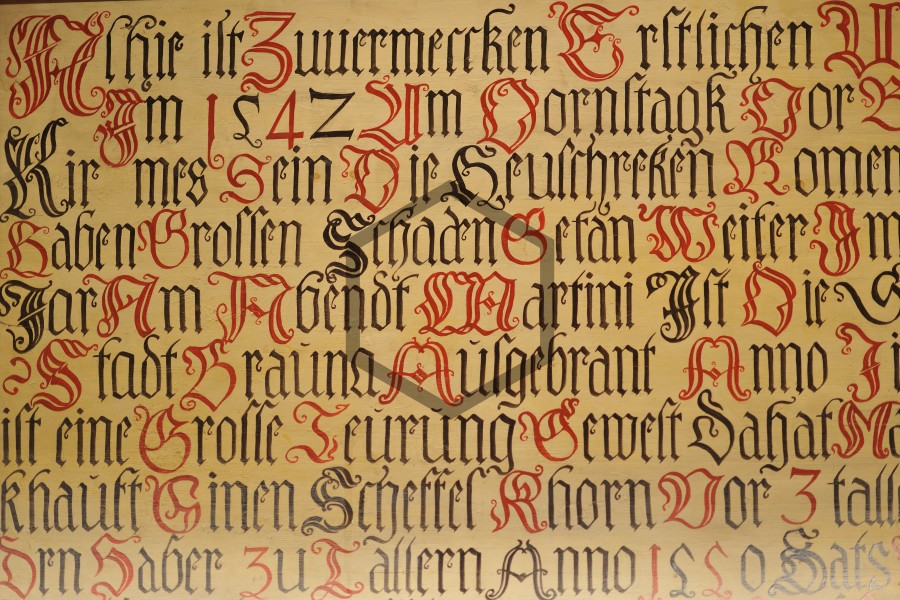 Alhie ist Zuuermercken Erstlichen
Im 1542 Am Dornstagk Vor
Kirmes Sein Die Heuschreken Komen
Haben Grossen Schaden Getan Weiter Im
Jar Am Abendt Martini Ist Die
Stadt Brauna Ausgebrant Anno
ist eine Grosse Teurung Gewest Dahat
khauft Einen Scheffel Khorn Vor 3
Haber zu Tallern Anno 1550 Hats